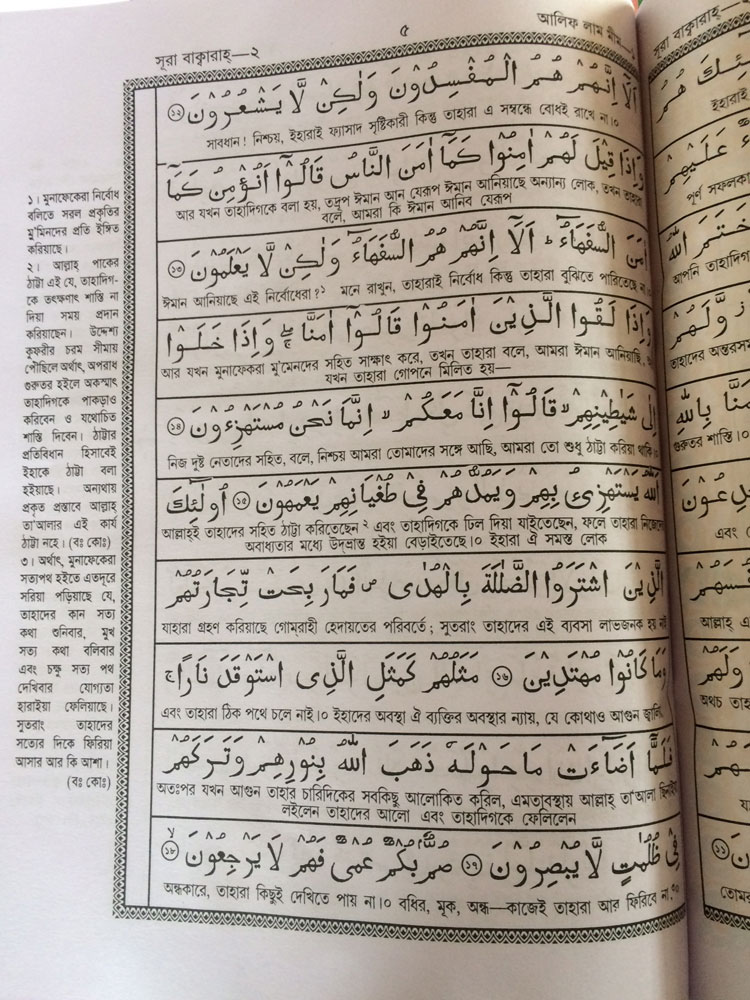 সূরা বাক্বারাহ্—২
৫
আলিফ লাম মীম—১
اَلَاۤ اِنَّهُمْ هُمُ الْمُفْسِدُوْنَ وَلٰكِنْ لَّا يَشْعُرُوْنَ ⑫
সাবধান! নিশ্চয়, ইহারাই ফ্যাসাদ সৃষ্টিকারী কিন্তু তাহারা এ সম্বন্ধে বোধই রাখে না।০
وَاِذَا قِيْلَ لَهُمْ اٰمِنُوْا كَمَاۤ اٰمَنَ النَّاسُ قَالُوْۤا اَنُؤْمِنُ كَمَاۤ
আর যখন তাহাদিগকে বলা হয়, তদ্রূপ ঈমান আন যেরূপ ঈমান আনিয়াছে অন্যান্য লোক, তখন তাহারা
বলে, আমরা কি ঈমান আনিব যেরূপ
اٰمَنَ السُّفَهَآءُ ؕ اَلَاۤ اِنَّهُمْ هُمُ السُّفَهَآءُ وَلٰكِنْ لَّا يَعْلَمُوْنَ ⑬
ঈমান আনিয়াছে এই নির্বোধেরা?১ মনে রাখুন, তাহারাই নির্বোধ কিন্তু তাহারা বুঝিতে পারিতেছে না।
وَاِذَا لَقُوا الَّذِيْنَ اٰمَنُوْا قَالُوْۤا اٰمَنَّا ۚ وَاِذَا خَلَوْا
আর যখন মুনাফেকরা মু'মেনদের সহিত সাক্ষাৎ করে, তখন তাহারা বলে, আমরা ঈমান আনিয়াছি,
যখন তাহারা গোপনে মিলিত হয়—
اِلٰى شَيٰطِيْنِهِمْ ۙ قَالُوْۤا اِنَّا مَعَكُمْ ۙ اِنَّمَا نَحْنُ مُسْتَهْزِءُوْنَ ⑭
নিজ দুষ্ট নেতাদের সহিত, বলে, নিশ্চয় আমরা তোমাদের সঙ্গে আছি, আমরা তো শুধু ঠাট্টা করিয়া থাকি।০
اَللّٰهُ يَسْتَهْزِئُ بِهِمْ وَيَمُدُّهُمْ فِيْ طُغْيَانِهِمْ يَعْمَهُوْنَ ⑮ اُولٰٓئِكَ
আল্লাহ্ই তাহাদের সহিত ঠাট্টা করিতেছেন ২ এবং তাহাদিগকে ঢিল দিয়া যাইতেছেন, ফলে তাহারা নিজেদের
অবাধ্যতার মধ্যে উদভ্রান্ত হইয়া বেড়াইতেছে।০ ইহারা ঐ সমস্ত লোক
الَّذِيْنَ اشْتَرَوُا الضَّلٰلَةَ بِالْهُدٰى ۪ فَمَا رَبِحَتْ تِّجَارَتُهُمْ
যাহারা গ্রহণ করিয়াছে গোম্‌রাহী হেদায়তের পরিবর্তে; সুতরাং তাহাদের এই ব্যবসা লাভজনক হয় নাই
وَمَا كَانُوْا مُهْتَدِيْنَ ⑯ مَثَلُهُمْ كَمَثَلِ الَّذِى اسْتَوْقَدَ نَارًا ۚ
এবং তাহারা ঠিক পথে চলে নাই।০ ইহাদের অবস্থা ঐ ব্যক্তির অবস্থার ন্যায়, যে কোথাও আগুন জ্বালি
فَلَمَّاۤ اَضَآءَتْ مَا حَوْلَهٗ ذَهَبَ اللّٰهُ بِنُوْرِهِمْ وَتَرَكَهُمْ
অতঃপর যখন আগুন তাহার চারিদিকের সবকিছু আলোকিত করিল, এমতাবস্থায় আল্লাহ্ তা'আলা ছিনাইয়া
লইলেন তাহাদের আলো এবং তাহাদিগকে ফেলিলেন
فِيْ ظُلُمٰتٍ لَّا يُبْصِرُوْنَ ⑰ صُمٌّۢ بُكْمٌ عُمْيٌ فَهُمْ لَا يَرْجِعُوْنَ ⑱ ۙ
অন্ধকারে, তাহারা কিছুই দেখিতে পায় না।০ বধির, মূক, অন্ধ—কাজেই তাহারা আর ফিরিবে না।৩০
১। মুনাফেকেরা নির্বোধ
বলিতে সরল প্রকৃতির
মু'মিনদের প্রতি ইঙ্গিত
করিয়াছে।
২। আল্লাহ্ পাকের
ঠাট্টা এই যে, তাহাদিগ-
কে তৎক্ষণাৎ শাস্তি না
দিয়া সময় প্রদান
করিয়াছেন। উদ্দেশ্য
কুফরীর চরম সীমায়
পৌঁছিলে অর্থাৎ, অপরাধ
গুরুতর হইলে অকস্মাৎ
তাহাদিগকে পাকড়াও
করিবেন ও যথোচিত
শাস্তি দিবেন। ঠাট্টার
প্রতিবিধান হিসাবেই
ইহাকে ঠাট্টা বলা
হইয়াছে। অন্যথায়
প্রকৃত প্রস্তাবে আল্লাহ্
তা'আলার এই কার্য
ঠাট্টা নহে। (বঃ কোঃ)
৩। অর্থাৎ, মুনাফেকেরা
সত্যপথ হইতে এতদূরে
সরিয়া পড়িয়াছে যে,
তাহাদের কান সত্য
কথা শুনিবার, মুখ
সত্য কথা বলিবার
এবং চক্ষু সত্য পথ
দেখিবার যোগ্যতা
হারাইয়া ফেলিয়াছে।
সুতরাং তাহাদের
সত্যের দিকে ফিরিয়া
আসার আর কি আশা।
(বঃ কোঃ)
সূরা বাক্বারাহ্—
ইহারাই
عَلَيْهِمْ
পূর্ণ সফলকা
خَتَمَ اللّٰهُ
আপনি তাহাদিগ
وَّلَهُمْ
তাহাদের অন্তরসম
اٰمَنَّا بِاللّٰهِ
গুরুতর শাস্তি।০
এবং
আল্লাহ্ এ
وَلَهُمْ
অথচ তাহা
তোমর